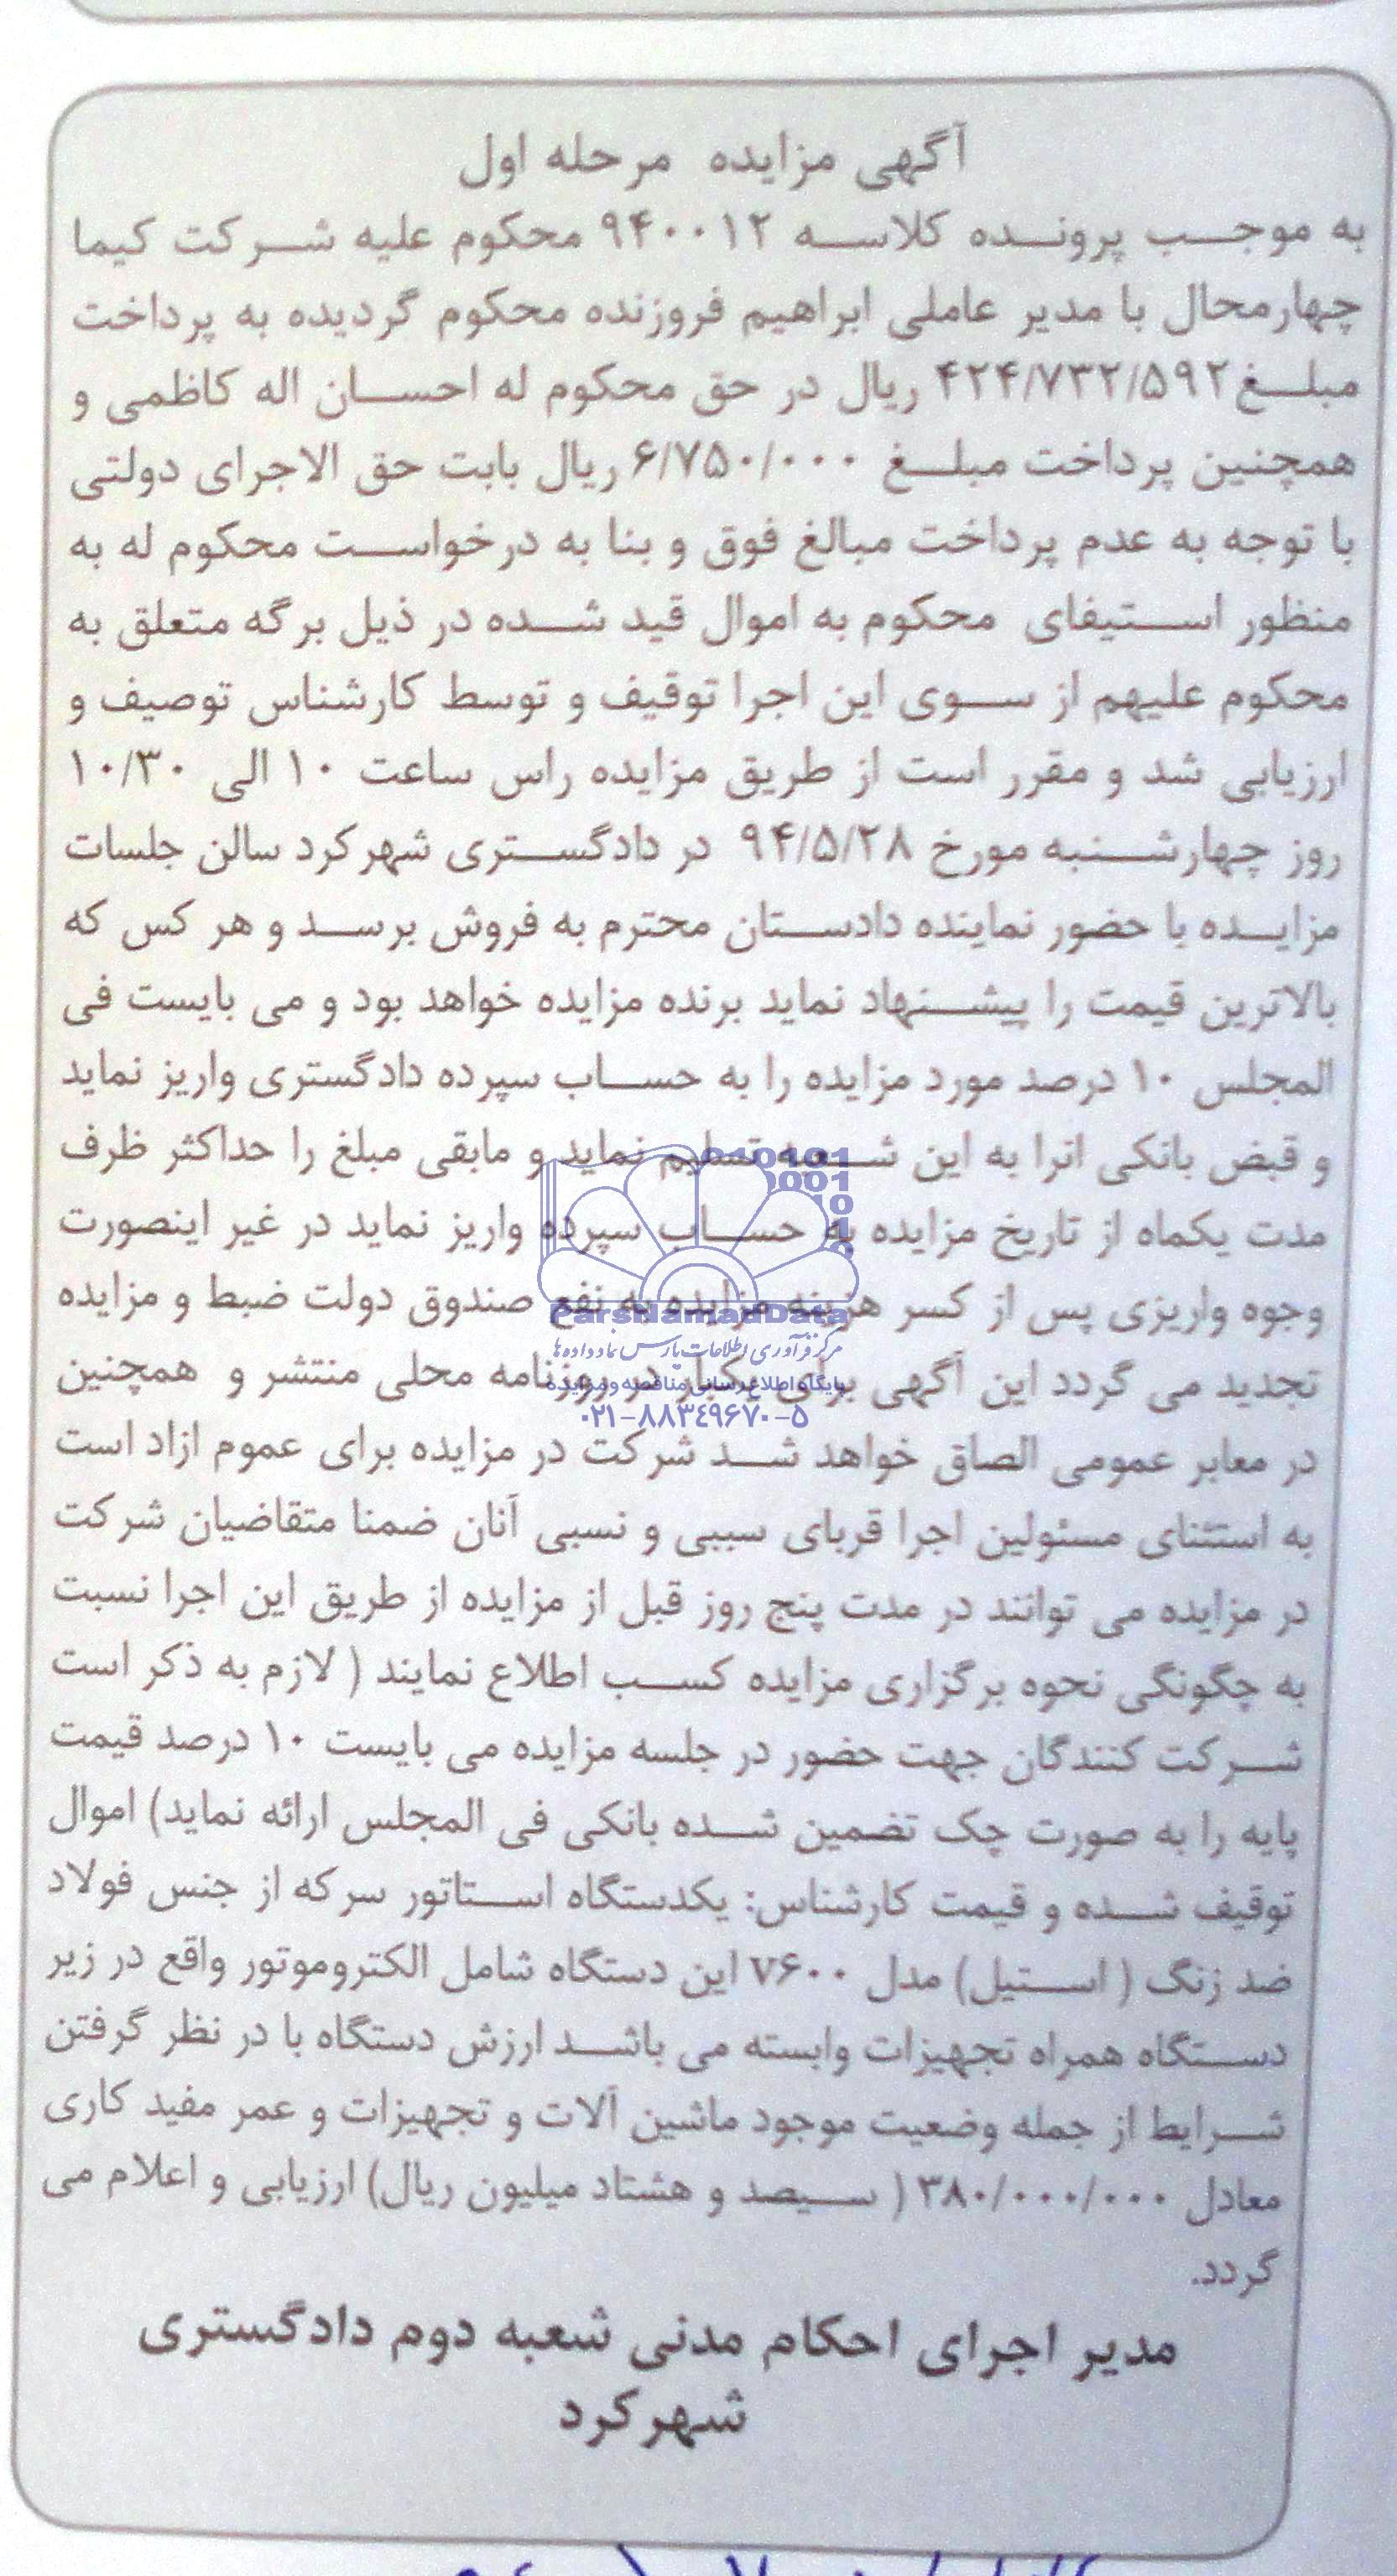 آگهی مزایده مرحله اول
به موجب پرونده کلاسه ۹۴۰۰۱۲ محکوم علیه شرکت کیما
چهارمحال با مدیر عاملی ابراهیم فروزنده محکوم گردیده به پرداخت
مبلغ ۴۲۴/۷۳۲/۵۹۲ ریال در حق محکوم له احسان اله کاظمی و
همچنین پرداخت مبلغ ۶/۷۵۰/۰۰۰ ریال بابت حق الاجرای دولتی
با توجه به عدم پرداخت مبالغ فوق و بنا به درخواست محکوم له به
منظور استیفای محکوم به اموال قید شده در ذیل برگه متعلق به
محکوم علیهم از سوی این اجرا توقیف و توسط کارشناس توصیف و
ارزیابی شد و مقرر است از طریق مزایده راس ساعت ۱۰ الی ۱۰/۳۰
روز چهارشنبه مورخ ۹۴/۵/۲۸ در دادگستری شهرکرد سالن جلسات
مزایده با حضور نماینده دادستان محترم به فروش برسد و هر کس که
بالاترین قیمت را پیشنهاد نماید برنده مزایده خواهد بود و می بایست فی
المجلس ۱۰ درصد مورد مزایده را به حساب سپرده دادگستری واریز نماید
و قبض بانکی انرا به این شعبه تسلیم نماید و مابقی مبلغ را حداکثر ظرف
مدت یکماه از تاریخ مزایده به حساب سپرده واریز نماید در غیر اینصورت
وجوه واریزی پس از کسر هزینه مزایده به نفع صندوق دولت ضبط و مزایده
ParsNamadData
مرکز فرآوری اطلاعات پارس نماد داده ها
تجدید می گردد این آگهی برای یکبار در روزنامه محلی منتشر و همچنین
پایگاه اطلاع رسانی مناقصه و مزایده
۰۲۱-۸۸۳۴۹۶۷۰-۵
در معابر عمومی الصاق خواهد شد شرکت در مزایده برای عموم ازاد است
به استثنای مسئولین اجرا قربای سببی و نسبی آنان ضمنا متقاضیان شرکت
در مزایده می توانند در مدت پنج روز قبل از مزایده از طریق این اجرا نسبت
به چگونگی نحوه برگزاری مزایده کسب اطلاع نمایند ( لازم به ذکر است
شرکت کنندگان جهت حضور در جلسه مزایده می بایست ۱۰ درصد قیمت
پایه را به صورت چک تضمین شده بانکی فی المجلس ارائه نماید) اموال
توقیف شده و قیمت کارشناس: یکدستگاه استاتور سرکه از جنس فولاد
ضد زنگ ( استیل) مدل v۶۰۰ این دستگاه شامل الکتروموتور واقع در زیر
دستگاه همراه تجهیزات وابسته می باشد ارزش دستگاه با در نظر گرفتن
شرایط از جمله وضعیت موجود ماشین آلات و تجهیزات و عمر مفید کاری
معادل ۳۸۰/۰۰۰/۰۰۰ ( سیصد و هشتاد میلیون ریال) ارزیابی و اعلام می
گردد.
مدیر اجرای احکام مدنی شعبه دوم دادگستری
شهرکرد